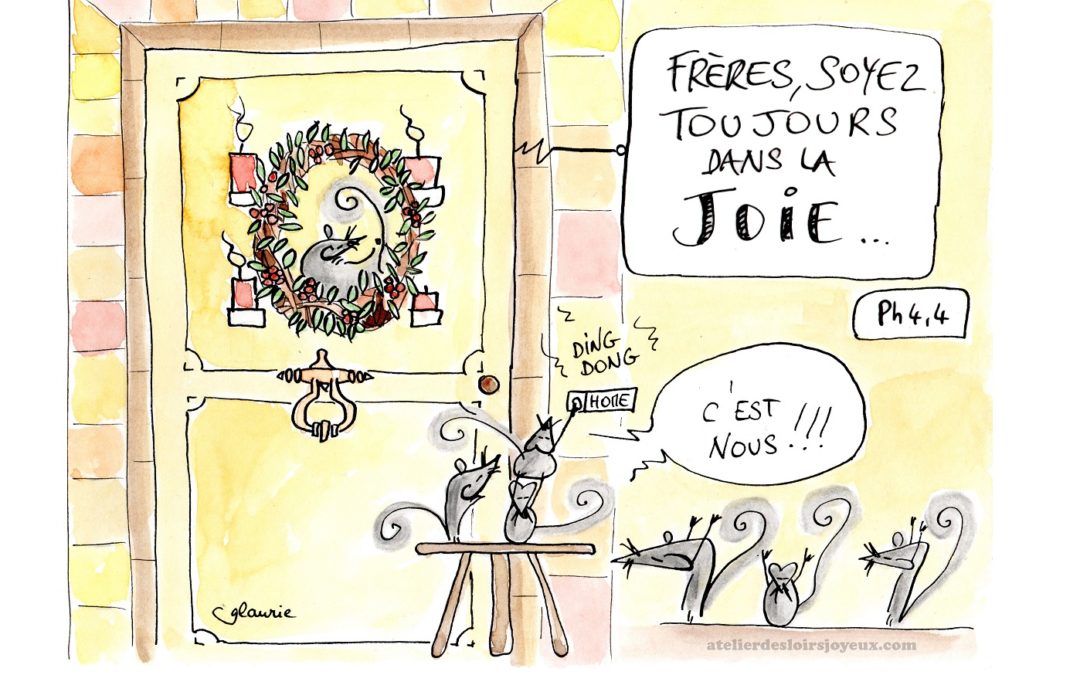 FRÈRES, SOYEZ
TOUJOURS
DANS LA
JOIE...
Ph 4,4
DING
DONG
HOME
C'EST
NOUS!!!
glaurie
atelierdesloirsjoyeux.com